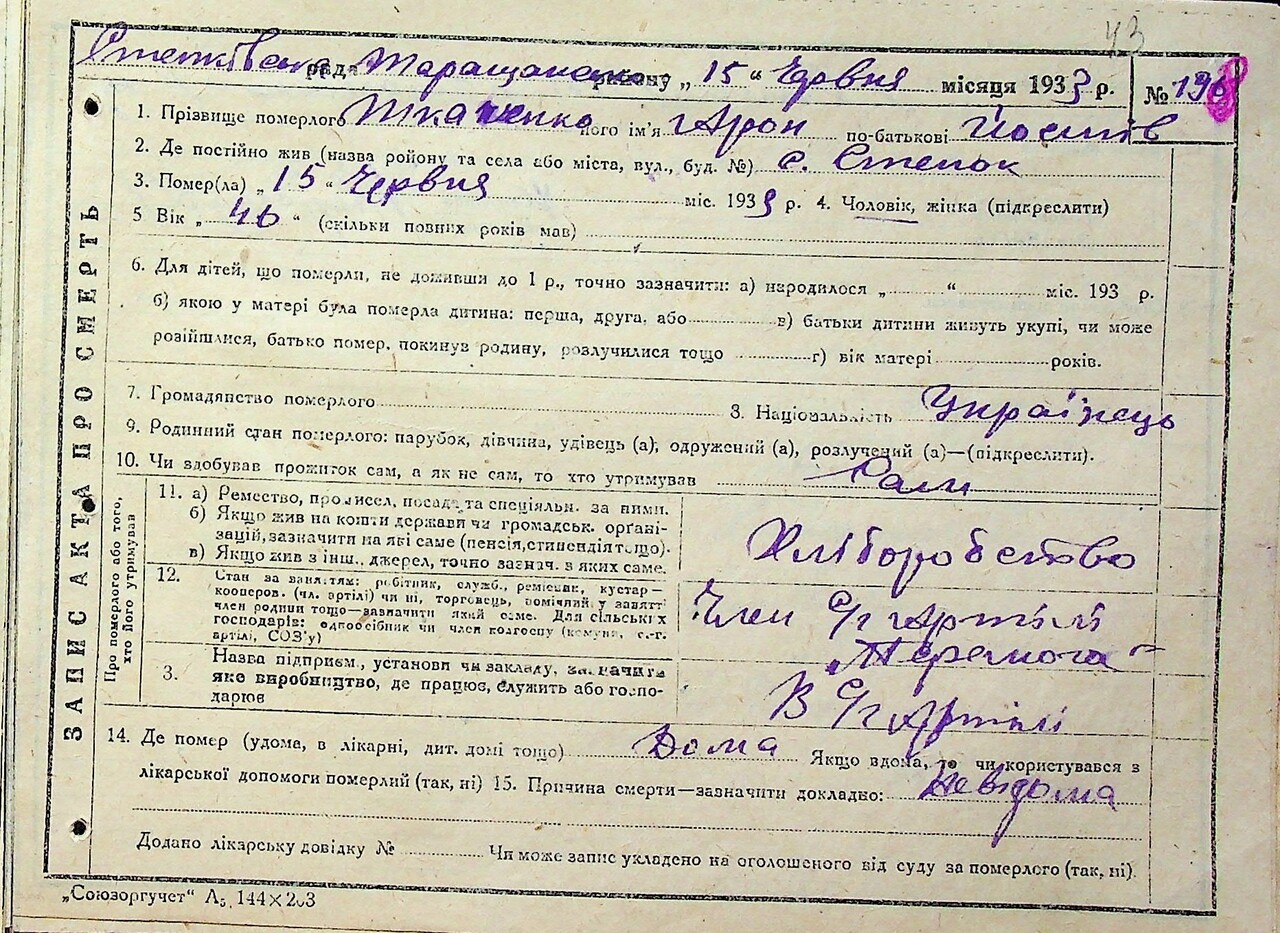 43
Степківська рада Таращанського району „15“ Червня місяця 1933 р. № 198
ЗАПИС АКТА ПРО СМЕРТЬ
1. Прізвище померлого Ткаченко його ім'я Арон по-батькові Йосипів
2. Де постійно жив (назва ройону та села або міста, вул., буд. №) с. Степок
3. Помер(ла) „15“ Червня міс. 1933 р. 4. Чоловік, жінка (підкреслити)
5 Вік „46“ (скільки повних років мав)
6. Для дітей, що померли, не доживши до 1 р., точно зазначити: а) народилося „ “ міс. 193 р.
б) якою у матері була померла дитина: перша, друга, або в) батьки дитини живуть укупі, чи може
розійшлися, батько помер, покинув родину, розлучилися тощо г) вік матері років.
7. Громадянство померлого 8. Національність Українець
9. Родинний стан померлого: парубок, дівчина, удівець (а), одружений (а), розлучений (а)—(підкреслити).
10. Чи здобував прожиток сам, а як не сам, то хто утримував Сам
Про померлого або того, хто його утримував
11. а) Ремество, промисел, посада та спеціяльн. за ними.
б) Якщо жив на кошти держави чи громадськ. органі-
зацій, зазначити на які саме (пенсія, стипендія тощо).
в) Якщо жив з інш. джерел, точно зазнач. з яких саме.
Хліборобство
12. Стан за заняттям: робітник, служб., ремісник, кустар—
кооперов. (чл. артілі) чи ні, торговець, помічний у занятті
член родини тощо—зазначити який саме. Для сільських
господарів: одноосібник чи член колгоспу (комуни, с.-г.
артілі, СОЗ'у)
Член С/г Артілі
„Перемога“
3. Назва підприєм., установи чи закладу, зазначити
яке виробництво, де працює, служить або госпо-
дарює
В С/г Артілі
14. Де помер (удома, в лікарні, дит. домі тощо) Дома Якщо вдома, то чи користувався з
лікарської допомоги померлий (так, ні) 15. Причина смерти—зазначити докладно: Невідома
Додано лікарську довідку № Чи може запис укладено на оголошеного від суду за померлого (так, ні).
„Союзоргучет“ А₅ 144×203